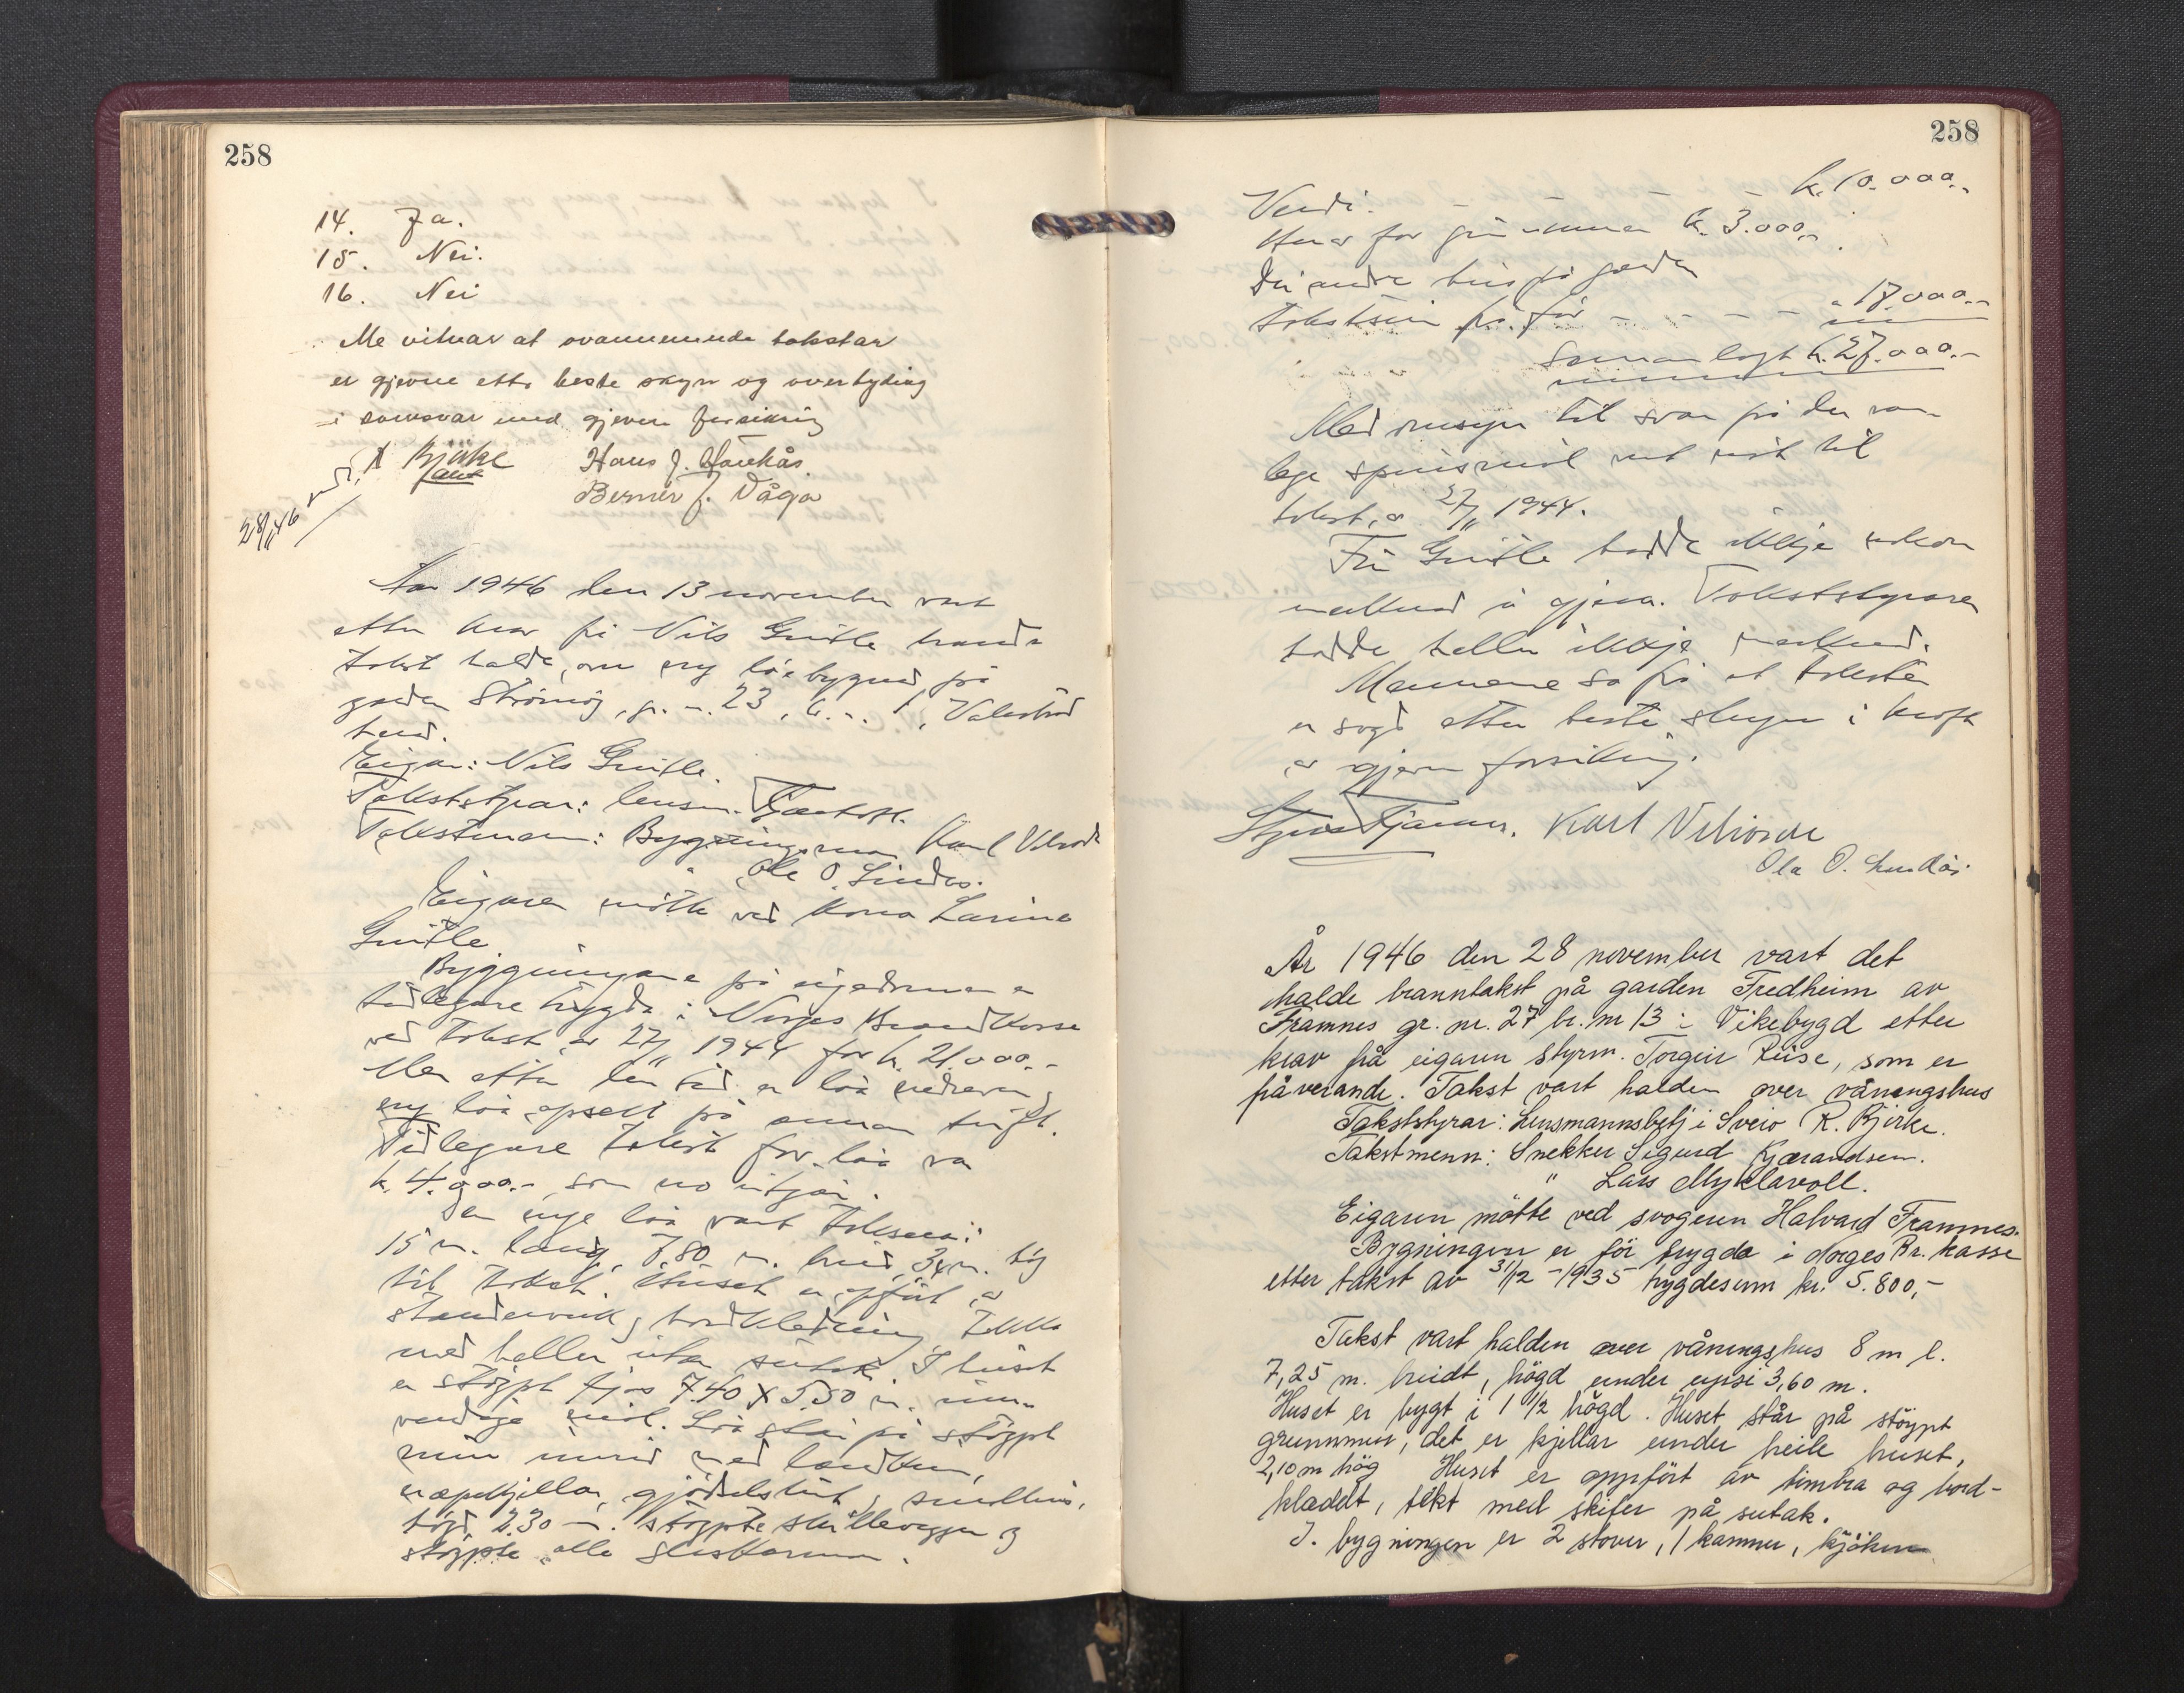 258
14. Ja.
15. Nei.
16. Nei
Me vitnar at ovannemnde takstar
er gjevne etter beste skyn og overtyding
i samsvar med gjeven forsikring
R Bjirke Hans J.
fullm Berner J. Våga
28/11 46
Aar 1946 den 13 november vart
etter krav frå Nils Guitle brand-
takst halde, om ny löebygnad på
garden Strömöy, gr. n. 23, b. n. 1, Valestrand
herad.
Eigar: Nils Guitle.
Takststyrar: lensm. Tjernes.
Takstmenn: Bygningsmann Karl
" Ole O. Lindås.
Eigaren mötte ved kona Larina
Guitle
Byggningane på eigedomen er
tidlegare trygda i Norges Brandkasse
ved takst av 27/11 1944 for kr. 21.000.-
Men etter den tid er löa nedreven og
ny löa opsett på annan tuft.
Tidlegare takst for löa var
kr. 4.000.- som no utgår.
Den nye löa vart taksera:
15 m. lang, 7.80 m. breid, 3 m. høg
til takst. Huset er opfört av
standerverk, bordkledning, tekka
med heller utan sutak. I huset
er stöypt fjos 7.40 X 5.50 m. inn-
vendige mål. Löa står på stöypt
mur innreid med landkum,
næpekjellar, gjödselshus, smalhus,
högd 2.30 m. stöypte skilleveggar og
stöypte alle
258
Verdi. - - - - kr. 10.000.-
Herav for grunnmur kr. 3.000.-
Dei andre hus på garden
takstsum frå för - - - - - " 17.000.-
Samanlagt kr. 27.000.-
Med omsyn til svar på dei van-
lege spursmål vert vist til
takst av 27/11 1944.
Fru Guitle hadde ikkje nokon
merknad å gjera. Takststyraren
hadde heller ikkje merknad.
Mennene sa frå at taksten
er sagd etter beste skyn i kraft
av gjeven forsikring.
Tjernes. Karl
Ola O. Lindås
År 1946 den 28 november vart det
halde branntakst på garden Fredheim av
Framnes gr. nr. 27 br. nr 13 i Vikebygd etter
krav frå eigaren styrm. Torgeir Riise, som er
fråverande. Takst vart halden over våningshus
Takststyrar: Lensmannsbetj i Sveio R. Bjirke.
Takstmenn: Snekker Sigurd Kjærandsen.
" Lars Myklavoll.
Eigaren mötte ved svogeren Halvard Framnes.
Bygningen er för trygda i Norges Br. kasse
etter takst av 31/12 - 1935 trygdesum kr. 5.800,-
Takst vart halden over våningshus 8 m l.
7,25 m. breidt, högd under upsi 3,60 m.
Huset er bygt i 1 1/2 högd. Huset står på stöypt
grunnmur, det er kjellar under heile huset,
2,10 m hög Huset er oppfört av timbra og bord-
kladdt, tekt med skifer på sutak.
I. bygningen er 2 stover, 1 kammer, kjöken